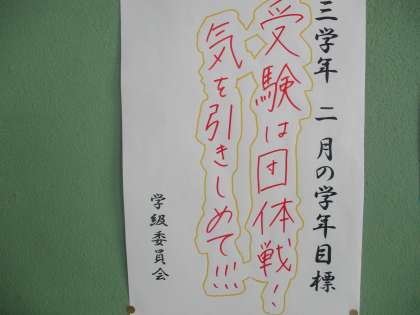 三学年 二月の学年目標
受験は団体戦!
気を引きしめて!!!
学級委員会